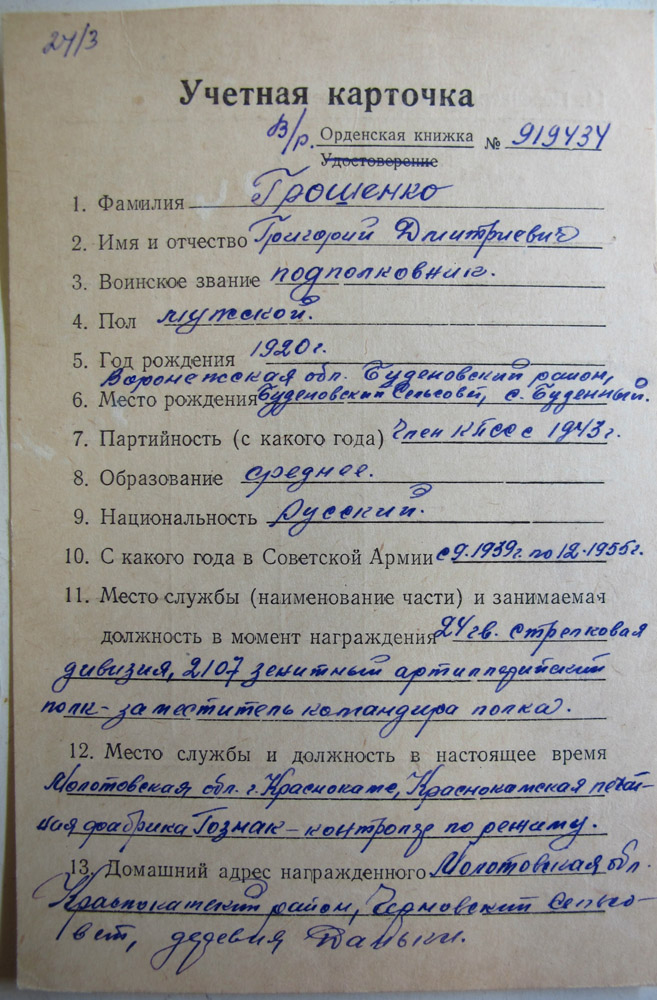 24/3
Учетная карточка
В/р. Орденская книжка № 919434
Удостоверение
1. Фамилия Грошенко
2. Имя и отчество Григорий Дмитриевич
3. Воинское звание подполковник.
4. Пол мужской.
5. Год рождения 1920г.
Воронежская обл. Буденовский район,
6. Место рождения Буденовский Сельсовет, с. Буденный.
7. Партийность (с какого года) Член КПСС с 1943г.
8. Образование среднее.
9. Национальность Русский.
10. С какого года в Советской Армии с 9.1939г. по 12.1955г.
11. Место службы (наименование части) и занимаемая
должность в момент награждения 24 гв. стрелковая
дивизия, 2107 зенитный артиллерийский
полк - заместитель командира полка.
12. Место службы и должность в настоящее время
Молотовская обл. г. Краснокамс, Краснокамская печат-
ная фабрика Гознак - контролер по режиму.
13. Домашний адрес награжденного Молотовская обл.
Краснокамский район, Черновский Сельсо-
вет, деревня Даньки.